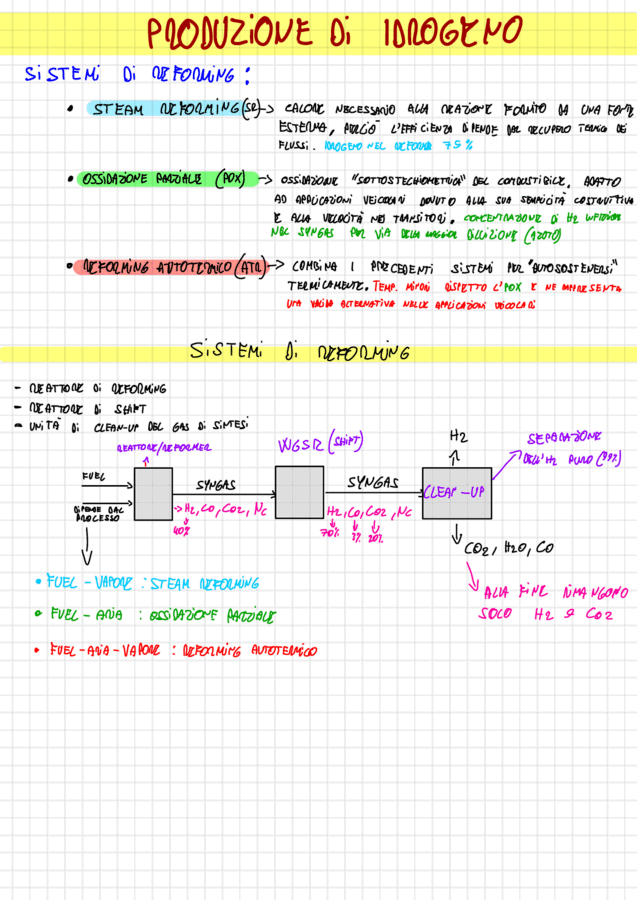 PRODUZIONE Di IDROGENO
SiSTEMi Di REFORMING :
• STEAM REFORMING (SR) → CALORE NECESSARIO ALLA REAZIONE FORNITO DA UNA FONTE
ESTERNA, PERCIÒ L'EFFICIENZA DIPENDE DAL RECUPERO TERMICO DEI
FLUSSI. IDROGENO NEL REFORMER 75%
• OSSIDAZIONE PARZIALE (POX) → OSSIDAZIONE "SOTTOSTECHIOMETRICA" DEL COMBUSTIBILE. ADATTO
AD APPLICAZIONI VEICOLARI DOVUTO ALLA SUA SEMPLICITÀ COSTRUTTIVA
E ALLA VELOCITÀ NEI TRANSITORI. CONCENTRAZIONE DI H2 INFERIORE
NEL SYNGAS PER VIA DELLA MAGGIOR DILUIZIONE (AZOTO)
• REFORMING AUTOTERMICO (ATR) → COMBINA I PRECEDENTI SISTEMI PER "AUTOSOSTENERSI"
TERMICAMENTE. TEMP. MINORI RISPETTO L'POX E NE RAPPRESENTA
UNA VALIDA ALTERNATIVA NELLE APPLICAZIONI VEICOLARI
SiSTEMi Di REFORMING
- REATTORE Di REFORMING
- REATTORE Di SHIFT
- UNITÀ Di CLEAN-UP DEL GAS Di SINTESI
REATTORE/REFORMER
WGSR (SHIFT)
H2
SEPARAZIONE
DELL'H2 PURO (99%)
FUEL
SYNGAS
SYNGAS
CLEAN-UP
DIPENDE DAL
PROCESSO
→ H2, CO, CO2, Nc
H2, CO, CO2, Nc
40%
70% 1% 20%
CO2, H2O, CO
• FUEL-VAPORE : STEAM REFORMING
ALLA FINE RIMANGONO
SOLO H2 e CO2
• FUEL-ARIA : OSSIDAZIONE PARZIALE
• FUEL-ARIA-VAPORE : REFORMING AUTOTERMICO